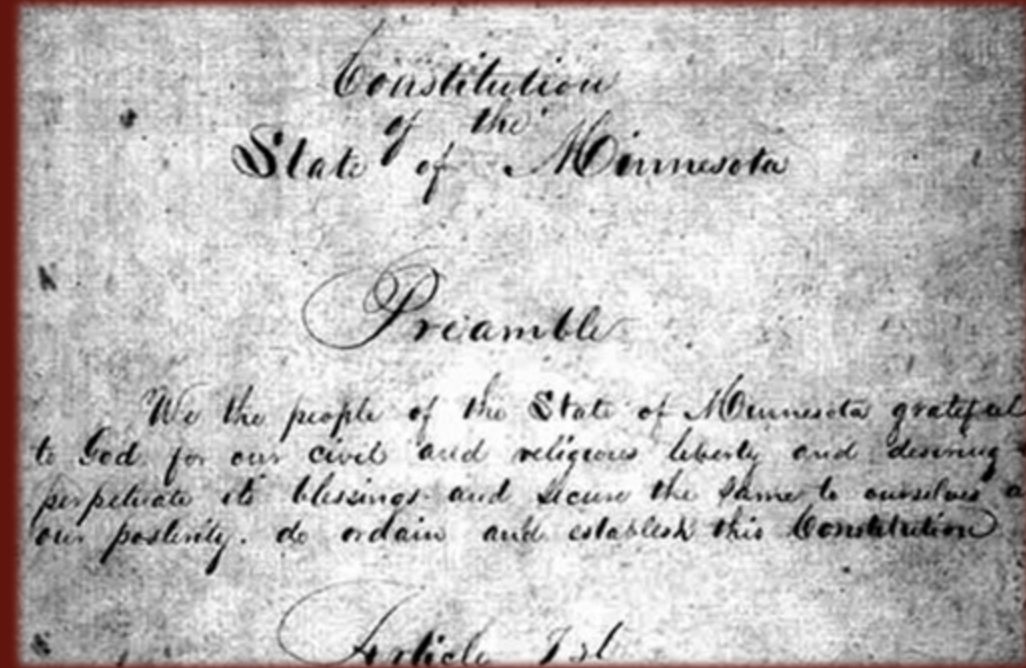 Constitution
of the
State of Minnesota
Preamble
We the people of the State of Minnesota grateful
to God for our civil and religious liberty and desiring
perpetuate its blessings and secure the same to ourselves a
our posterity. do ordain and establish this Constitution
Article 1st